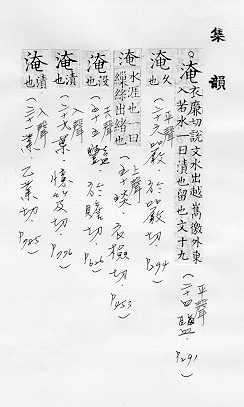 集韻
。淹 衣廉切說文水出越巂徼外東
入若水一曰漬也留也文十九
平聲 (二十四鹽. P.291)
淹 久也
平聲 嚴. 於嚴切. P.294)
淹 水涯也一曰
繅絲出緒也
上聲 (五十琰. 衣檢切. P.453)
淹 沒也
去聲 (五十五豔. 於贍切. P.626)
淹 漬也
入聲 葉. 憶笈切. P.776)
淹 漬也
入聲 業. 乙業切. P.785)